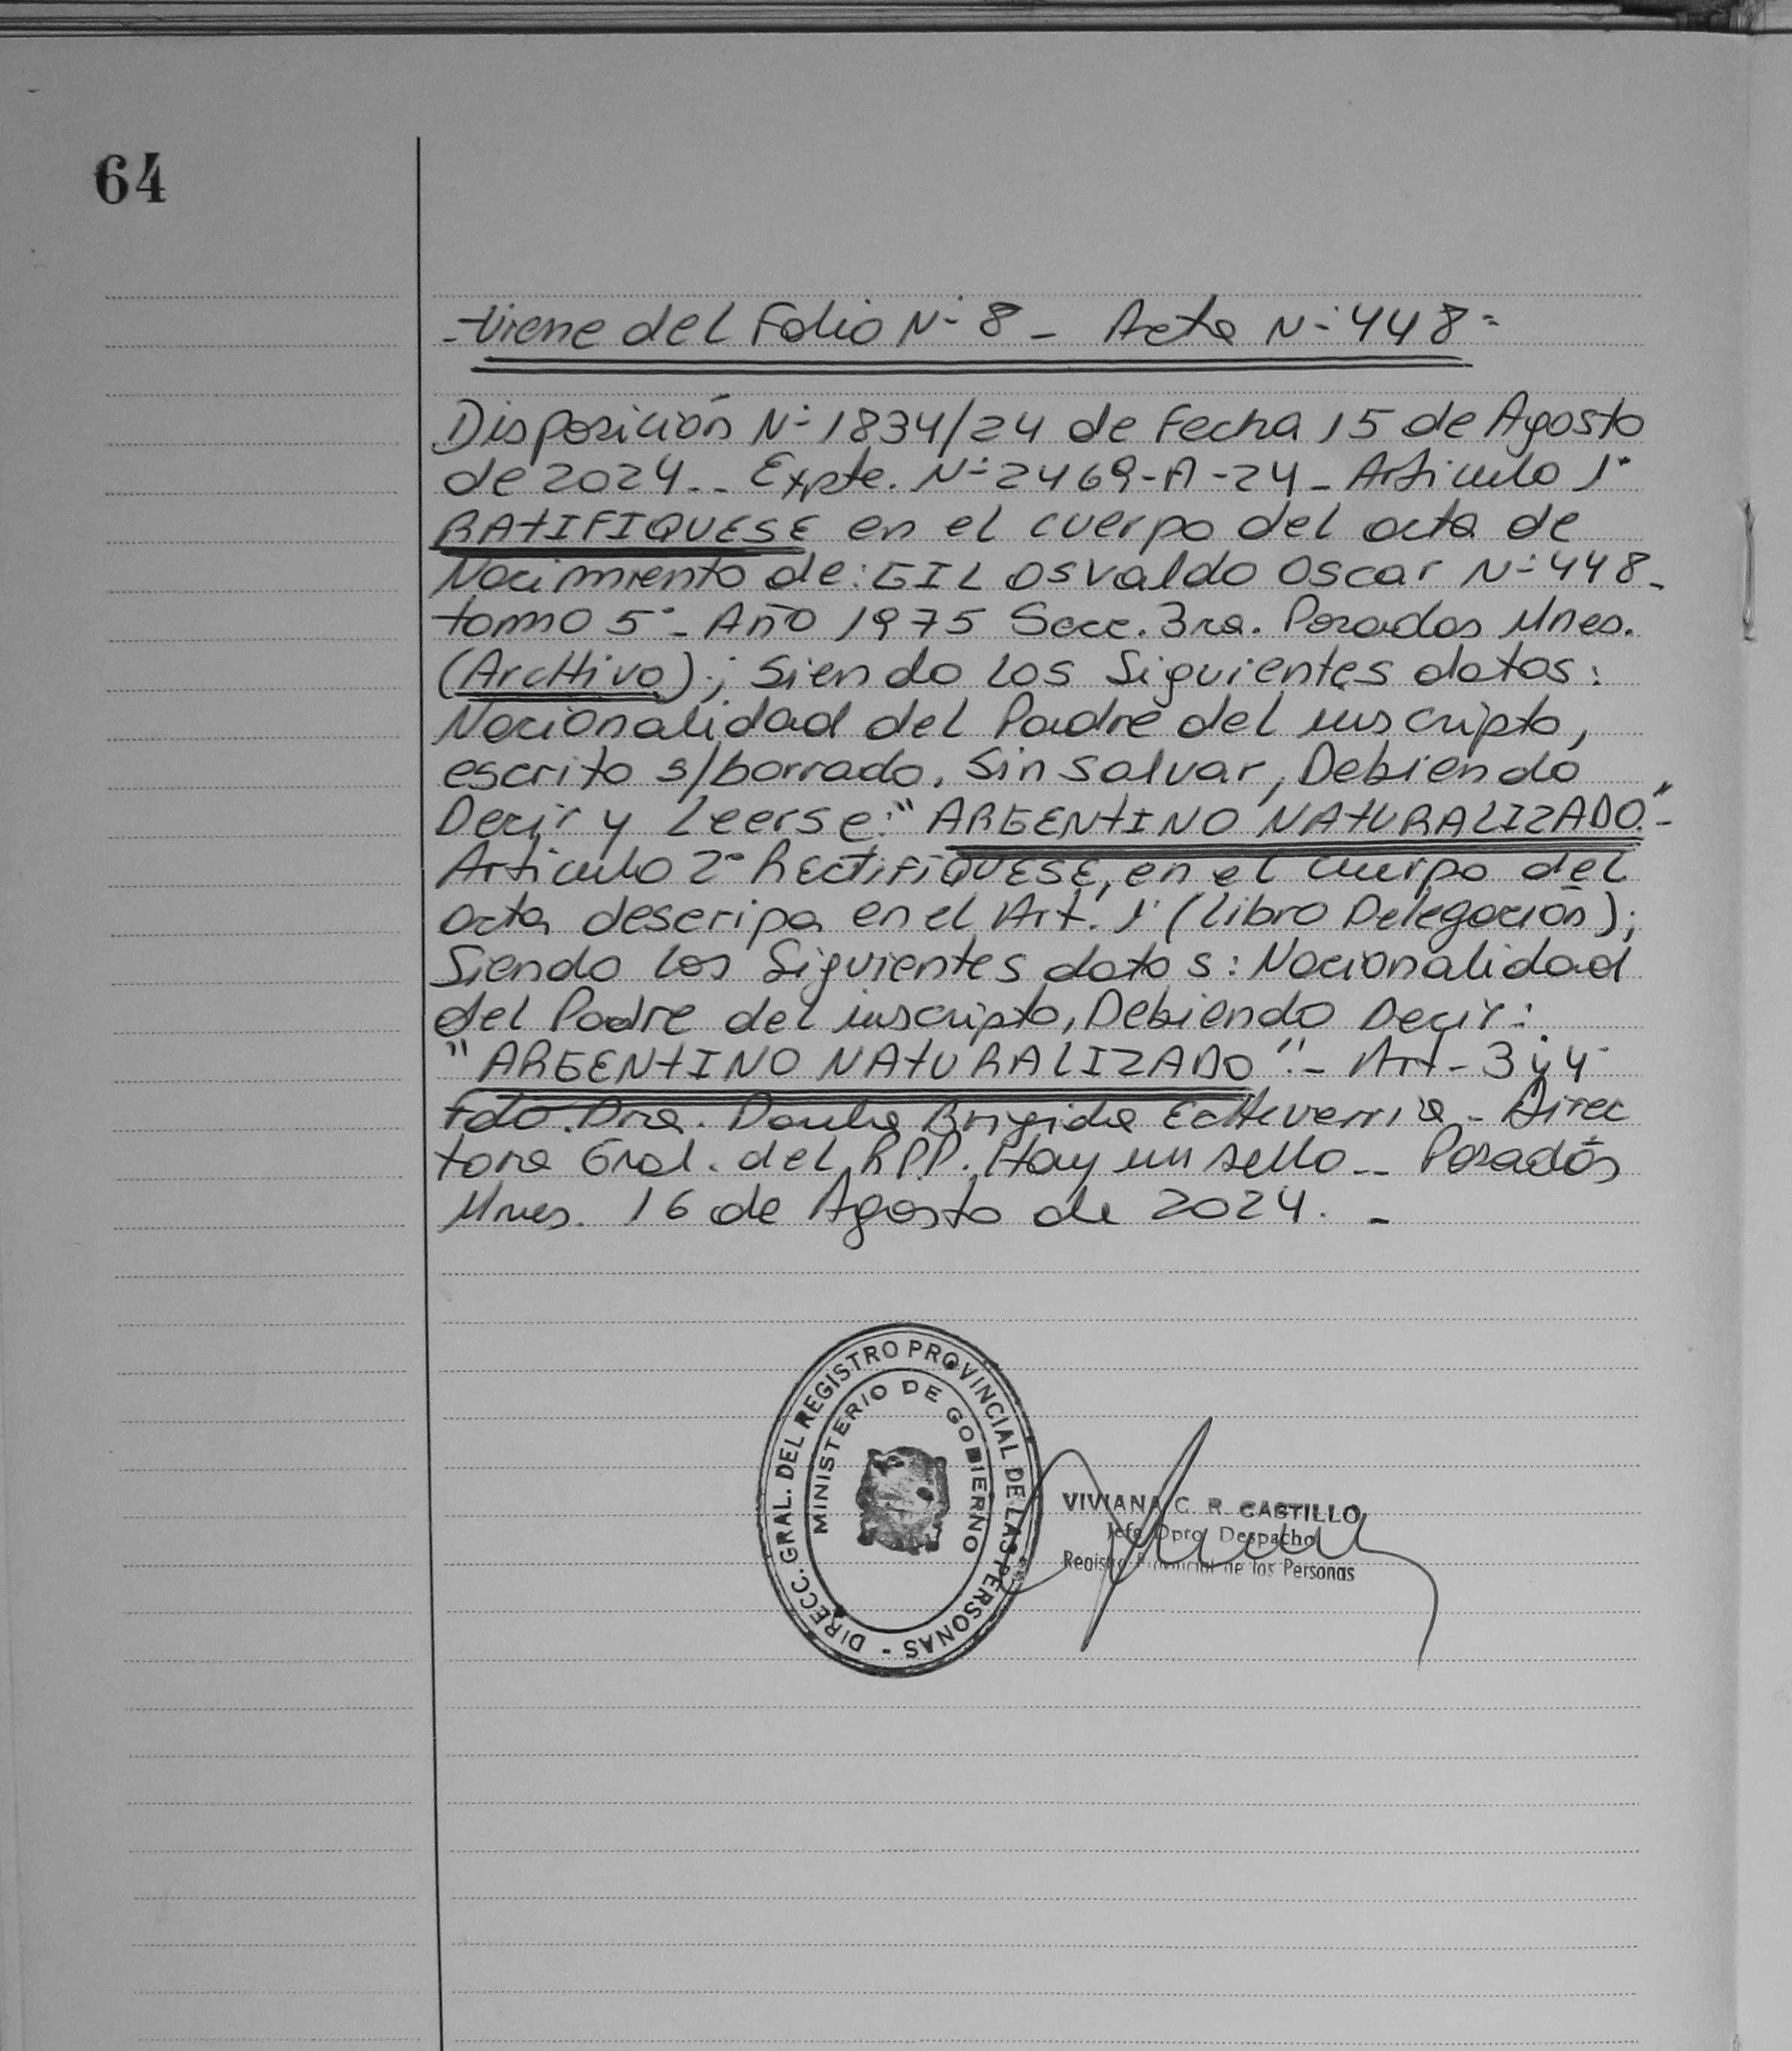 64
-Viene del Folio N° 8 - Acta N° 448=
Disposición N° 1834/24 de Fecha 15 de Agosto
de 2024.- Expte. N° 2469-A-24 - Articulo 1°
RATIFIQUESE en el cuerpo del acta de
Nacimiento de: GIL Osvaldo Oscar N° 448-
tomo 5° - Año 1975 Secc. 3ra. Posadas Mnes.
(Archivo); Siendo los Siguientes datos:
Nacionalidad del Padre del inscripto,
escrito s/borrado. Sin Salvar, Debiendo
Decir y Leerse: "ARGENTINO NATURALIZADO".-
Articulo 2° RECTIFIQUESE, en el cuerpo del
acta descripa en el Art. 1° (Libro Delegación);
Siendo los Siguientes datos: Nacionalidad
del Padre del inscripto, Debiendo Decir:
"ARGENTINO NATURALIZADO".- Art- 3 y 4
Fdo. Dra. Brigida Echeverria - Direc
tora Gral. del RPP. Hay un sello.- Posadas
Mnes. 16 de Agosto de 2024. -
DIRECC. GRAL. DEL REGISTRO PROVINCIAL DE LAS PERSONAS -
MINISTERIO DE GOBIERNO
VIVIANA C. R. CASTILLO
Jefe Dpto Despacho
Registro Provincial de las Personas